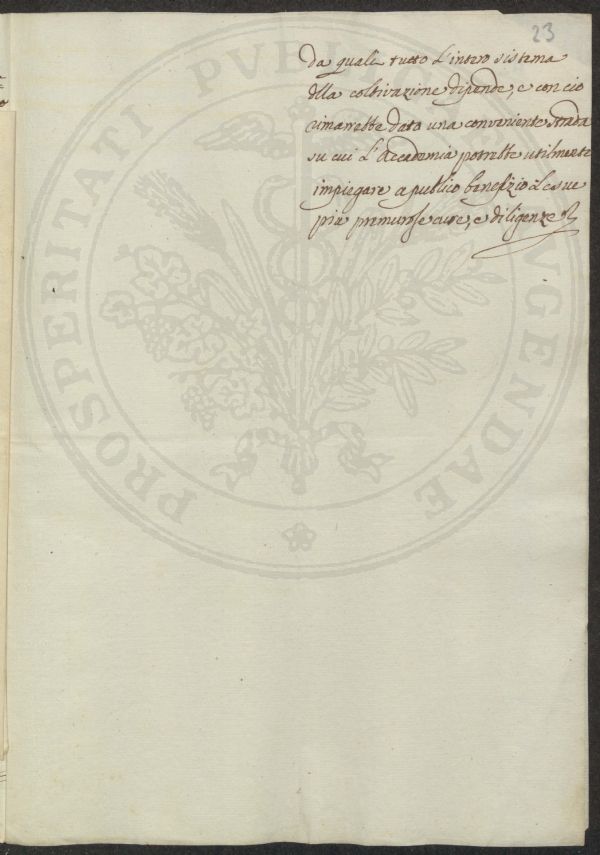 23
da quali tutto l'intero sistema
dlla coltivazione dipende, e con cio
rimarrebbe dato una conveniente strada
su cui L'Accademia potrebbe utilmente
impiegare a publico benefizio Le sue
più premurose cure, e diligenze
PROSPERITATI PVBLICAE AVGENDAE